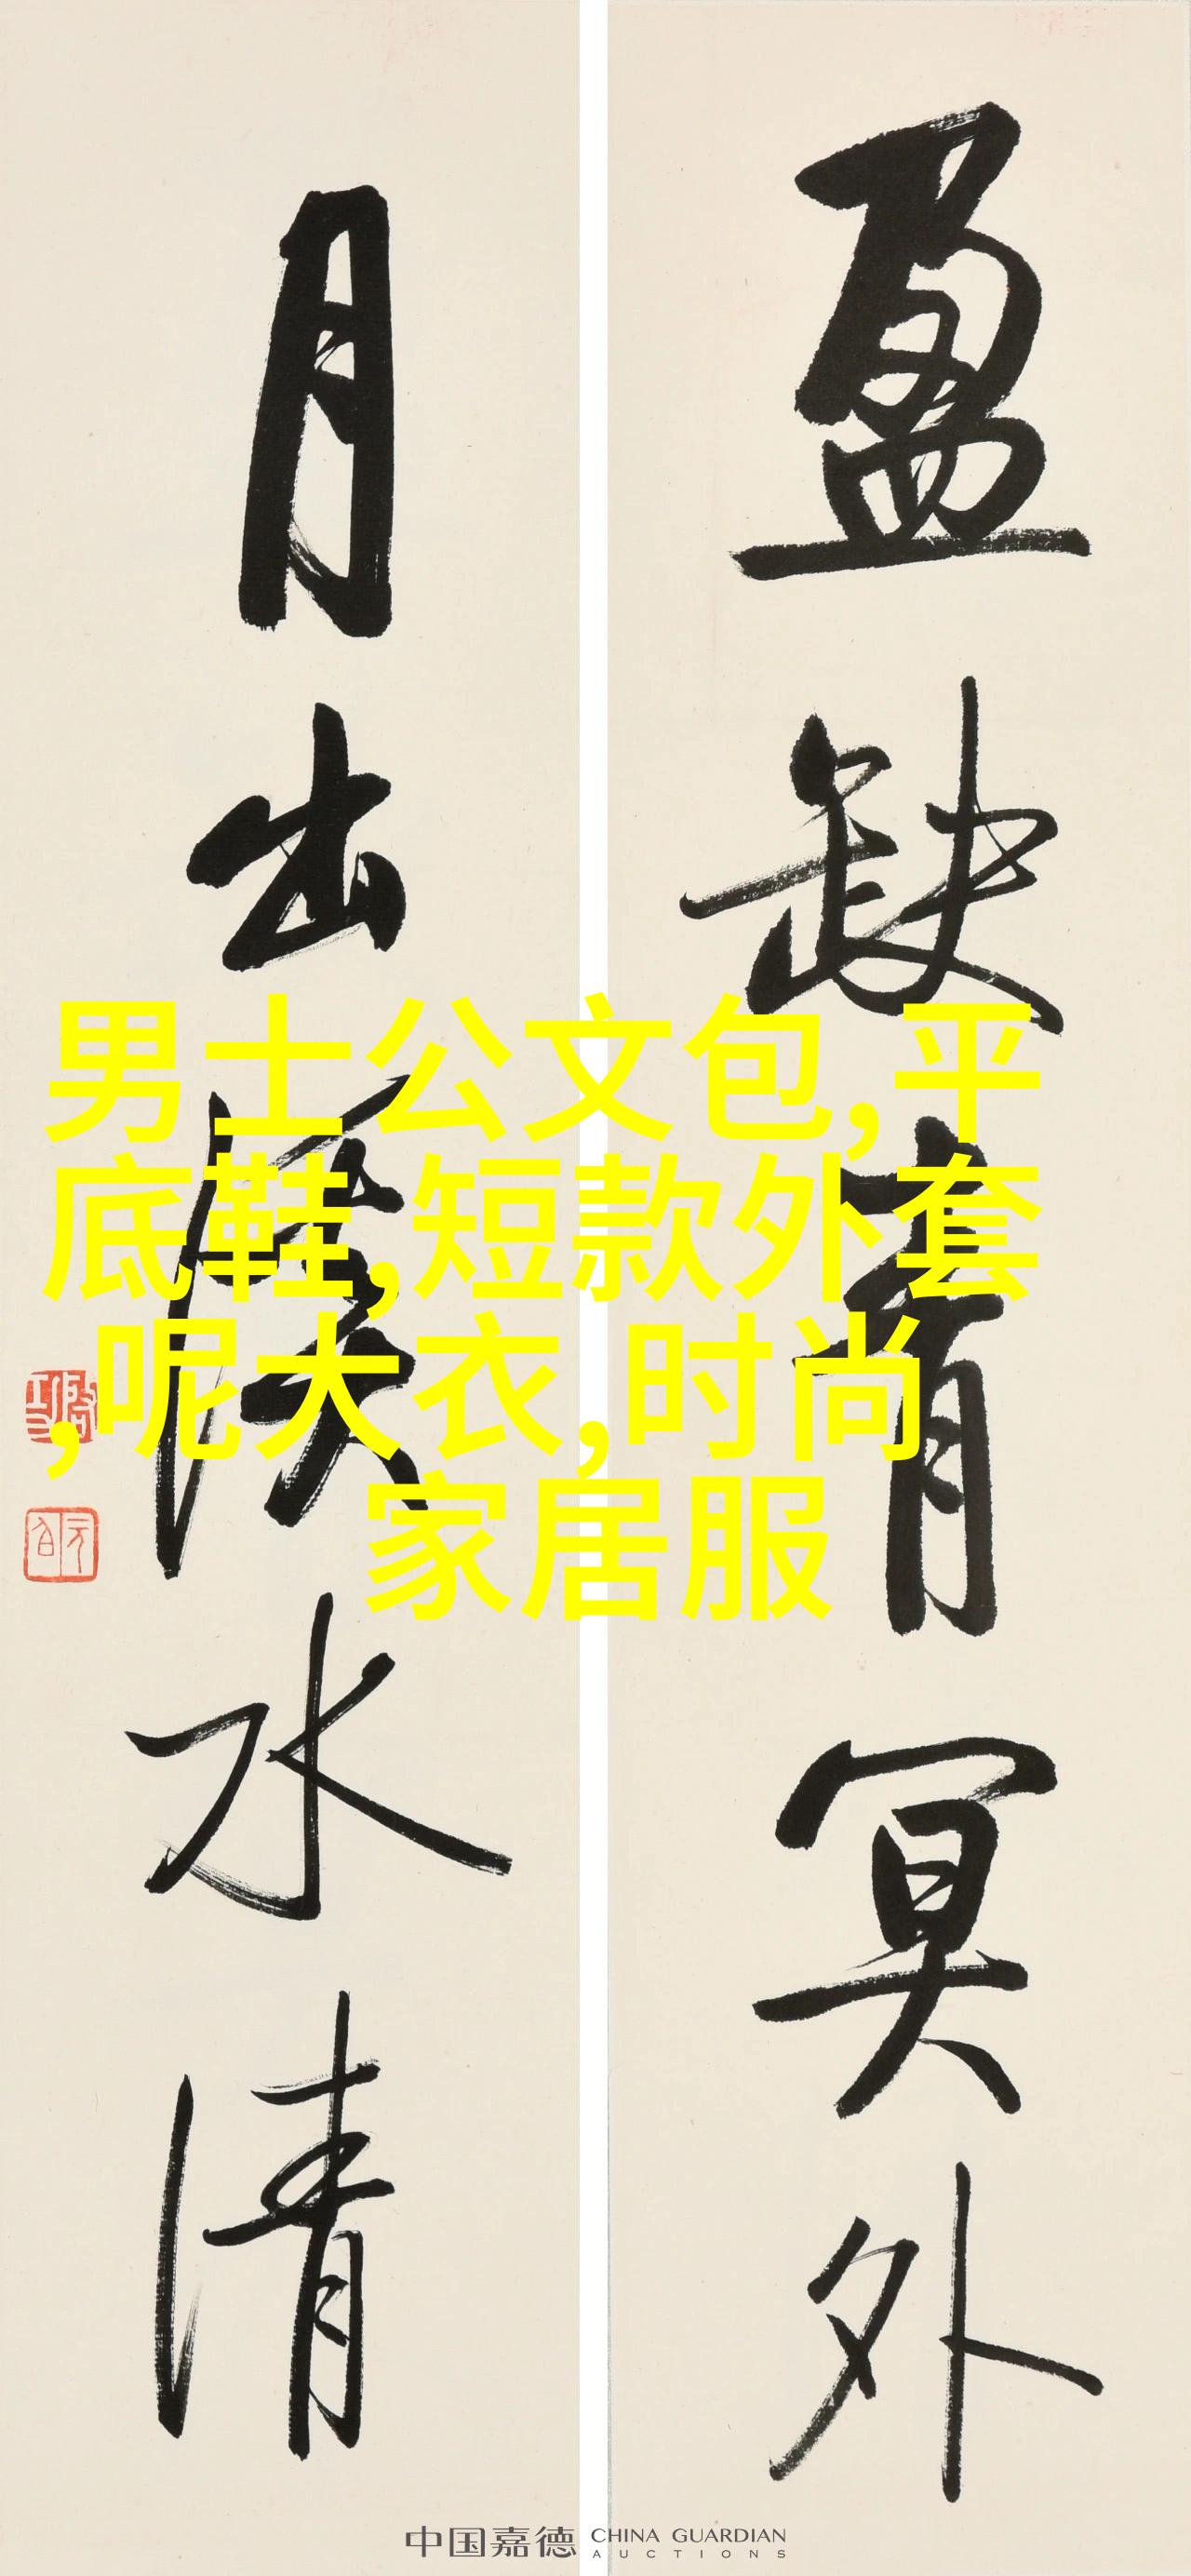 盈缺青冥外
月出溪水清
男士公文包,平
底鞋,短款外套
,呢大衣,时尚
家居服
中国嘉德 CHINA GUARDIAN
AUCTIONS